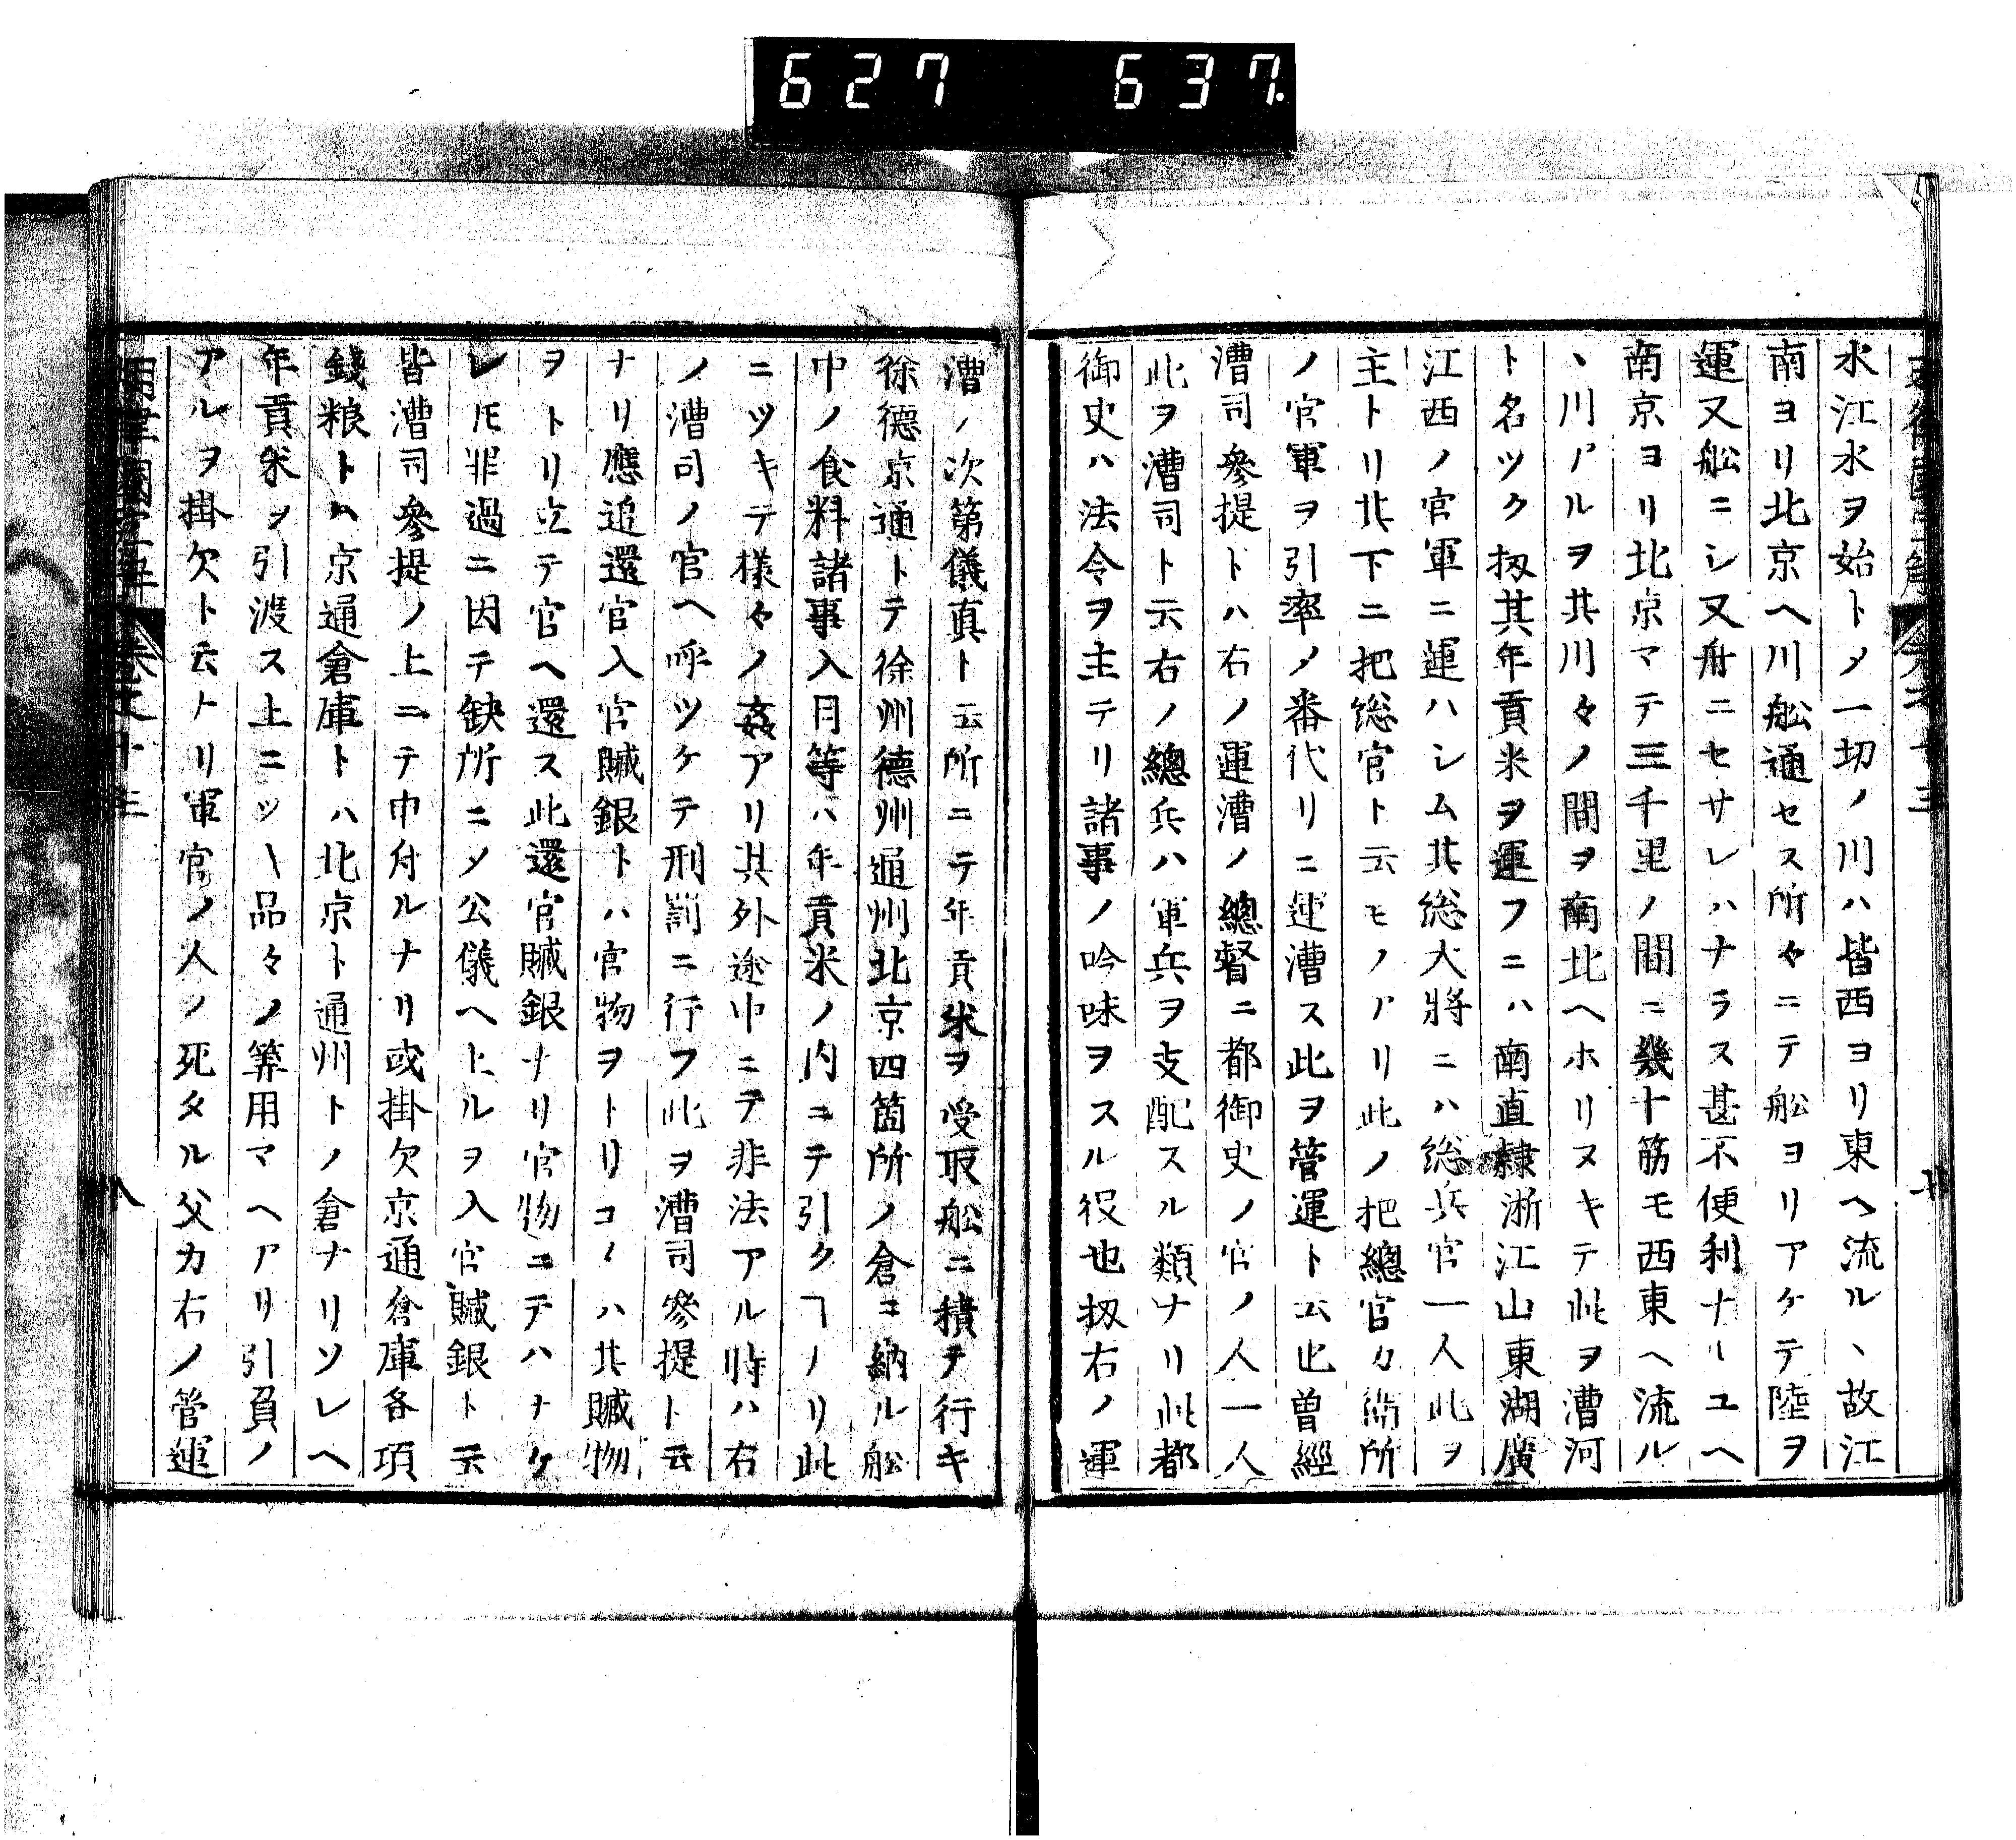 627 637.
水江水ヲ始トメ一切ノ川ハ皆西ヨリ東ヘ流ル、故江
南ヨリ北京ヘ川舩通セス所々ニテ舩ヨリアケテ陸ヲ
運又舩ニシ又舟ニセサレハナラス甚不便利ナルユヘ
南京ヨリ北京マテ三千里ノ間ニ幾十筋モ西東ヘ流ル
、川アルヲ其川々ノ間ヲ南北ヘホリヌキテ此ヲ漕河
ト名ツク扨其年貢米ヲ運フニハ南直隷浙江山東湖廣
江西ノ官軍ニ運ハシム其総大將ニハ総兵官一人此ヲ
主トリ其下ニ把総官ト云モノアリ此ノ把總官カ衛所
ノ官軍ヲ引率メ番代リニ運漕ス此ヲ管運ト云也曽經
漕司參提トハ右ノ運漕ノ總督ニ都御史ノ官ノ人一人
此ヲ漕司ト云右ノ總兵ハ軍兵ヲ支配スル類ナリ此都
御史ハ法令ヲ主テリ諸事ノ吟味ヲスル役也扨右ノ運
漕ノ次第儀真ト云所ニテ年貢米ヲ受取舩ニ積テ行キ
徐德京通トテ徐州德州通州北京四箇所ノ倉ニ納ル舩
中ノ食料諸事入目等ハ年貢米ノ内ニテ引クヿノリ此
ニツキテ様々ノ姦アリ其外途中ニテ非法アル時ハ右
ノ漕司ノ官ヘ呼ツケテ刑罰ニ行フ此ヲ漕司參提ト云
ナリ應追還官入官贓銀トハ官物ヲトリコメハ其贓物
ヲトリ立テ官ヘ還ス此還官贓銀ナリ官物ニテハナケ
レ𪜈罪過ニ因テ缺所ニメ公儀ヘ上ルヲ入官贓銀ト云
皆漕司參提ノ上ニテ申付ルナリ或掛欠京通倉庫各項
錢粮トハ京通倉庫トハ北京ト通州トノ倉ナリソレヘ
年貢米ヲ引渡ス上ニツ〵品々ノ筭用マヘアリ引負ノ
アルヲ掛欠ト云トリ軍官ノ人ノ死タル父カ右ノ管運